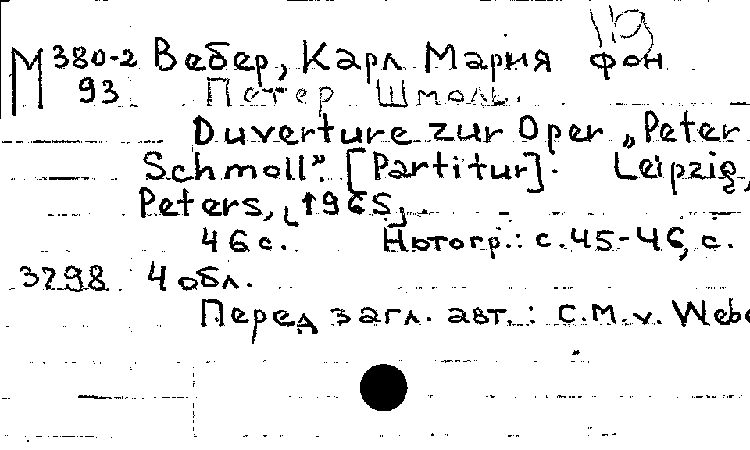 119
М 380-2 Вебер, Карл Мария фон
93 Петер Шмоль.
Ouverture zur Oper „Peter
Schmoll". [Partitur]. Leipzig,
Peters, [1965].
46 с. Нотогр.: с. 45-46, с.
3298 4 обл.
Перед загл. авт.: C.M.v. Webe